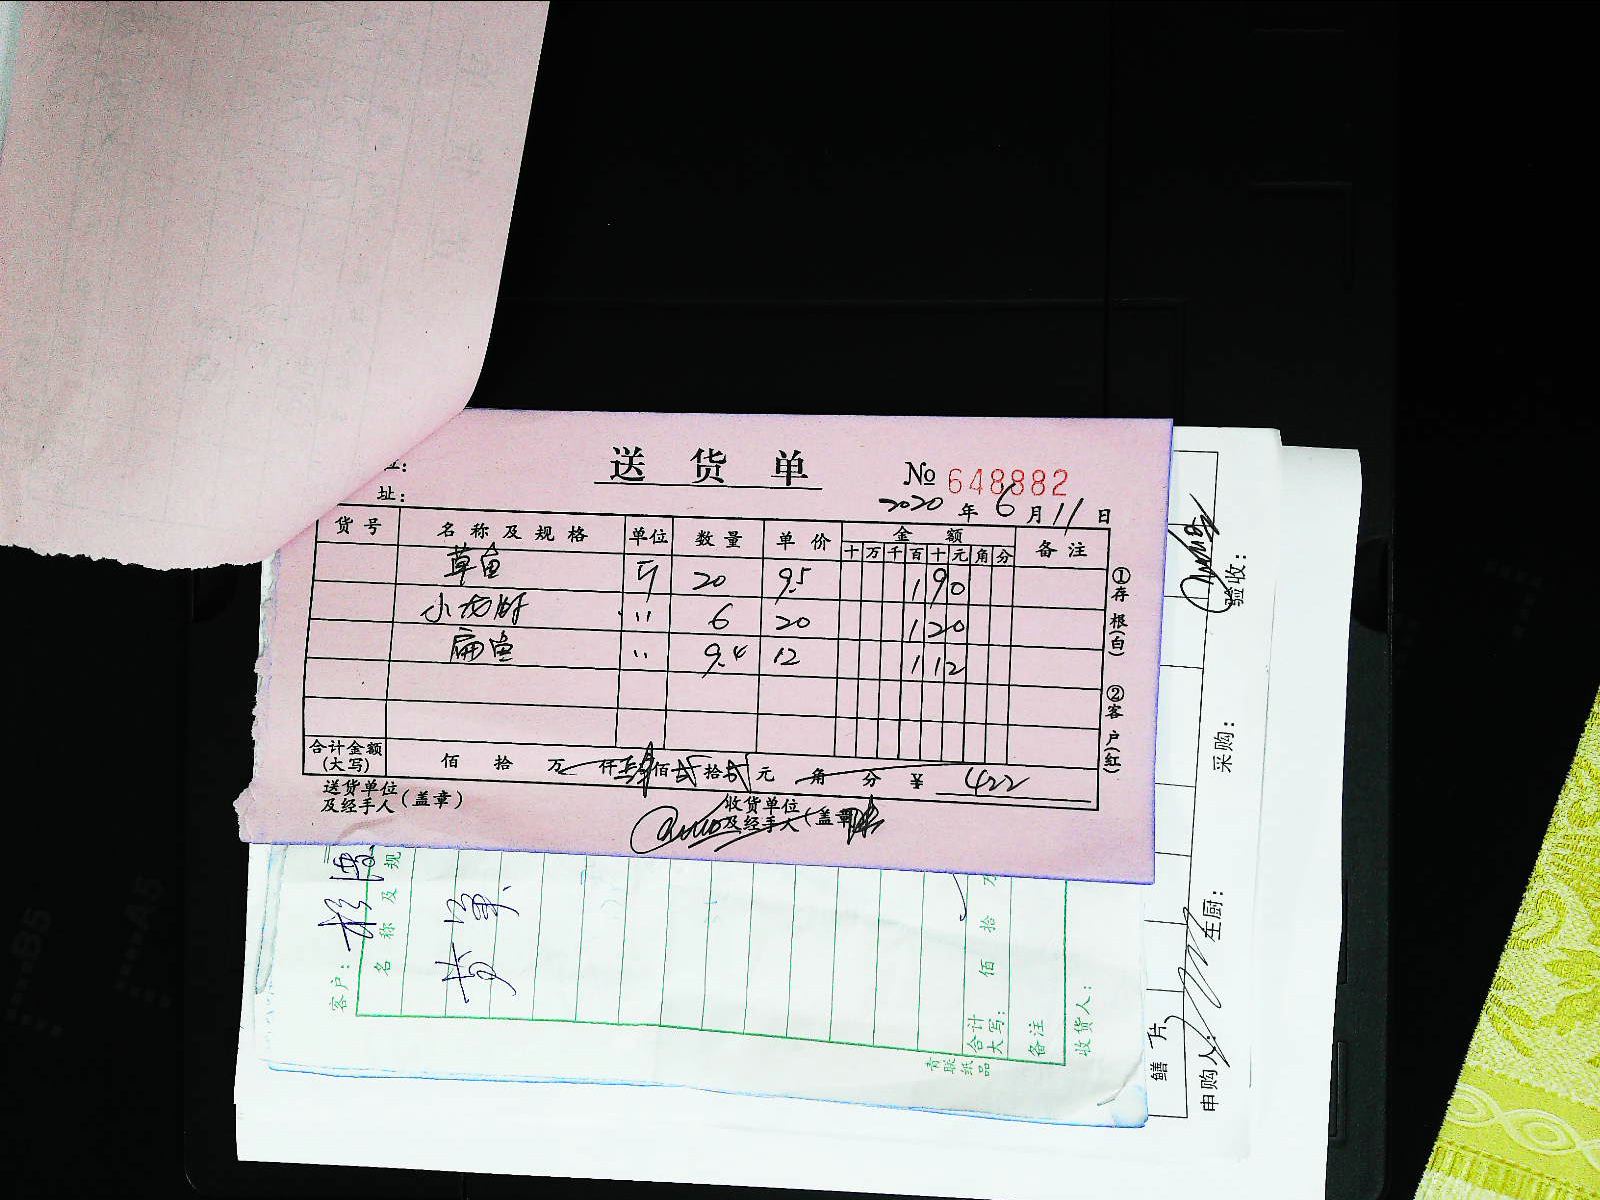 送货单
№ 648882
址：
2020年6月11日
货号 名称及规格 单位 数量 单价 金额 备注
十万千百十元角分
草鱼 斤 20 9.5 190
小龙虾 〃 6 20 120
扁鱼 〃 9.4 12 112
合计金额(大写) 佰 拾 万 仟 肆佰 贰拾 贰元 角 分 ￥ 422
送货单位及经手人(盖章)
收货单位及经手人(盖章)
①存根(白)
②客户(红)
客户：
名称及规
合计大写： 佰 拾 万
备注
收货人：
青联纸品
鳝片
申购人：
左厨：
采购：
验收：
B5
A5